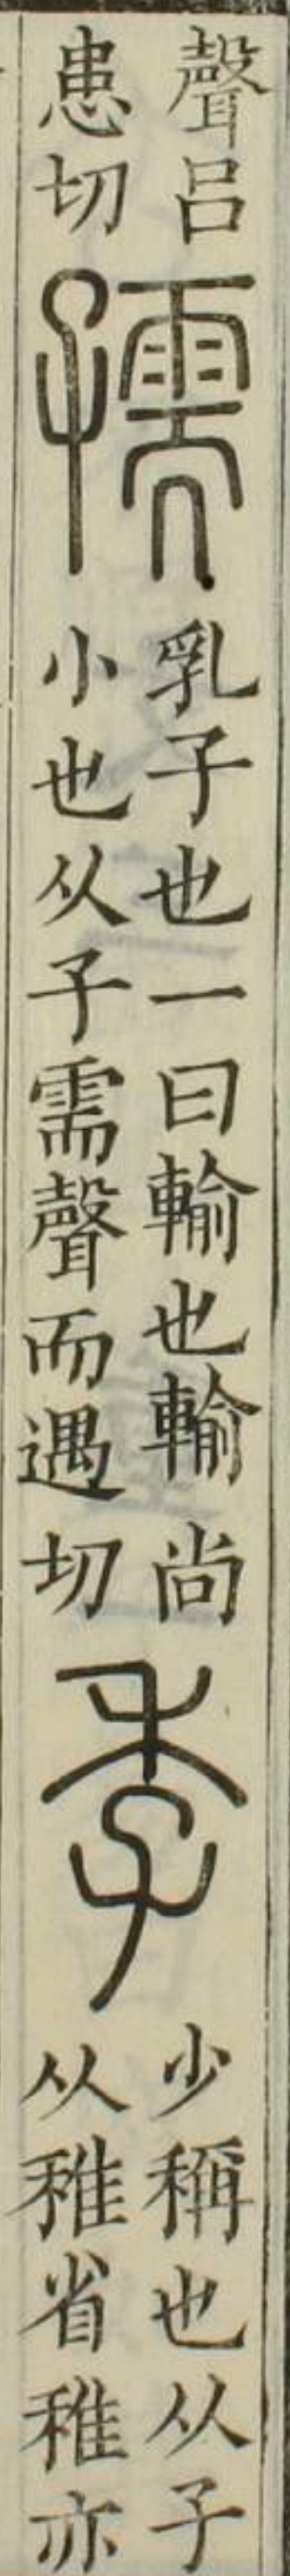 聲吕
患切
孺
乳子也一曰輸也輸尚
小也从子需聲而遇切
季
少稱也从子
从稚省稚亦